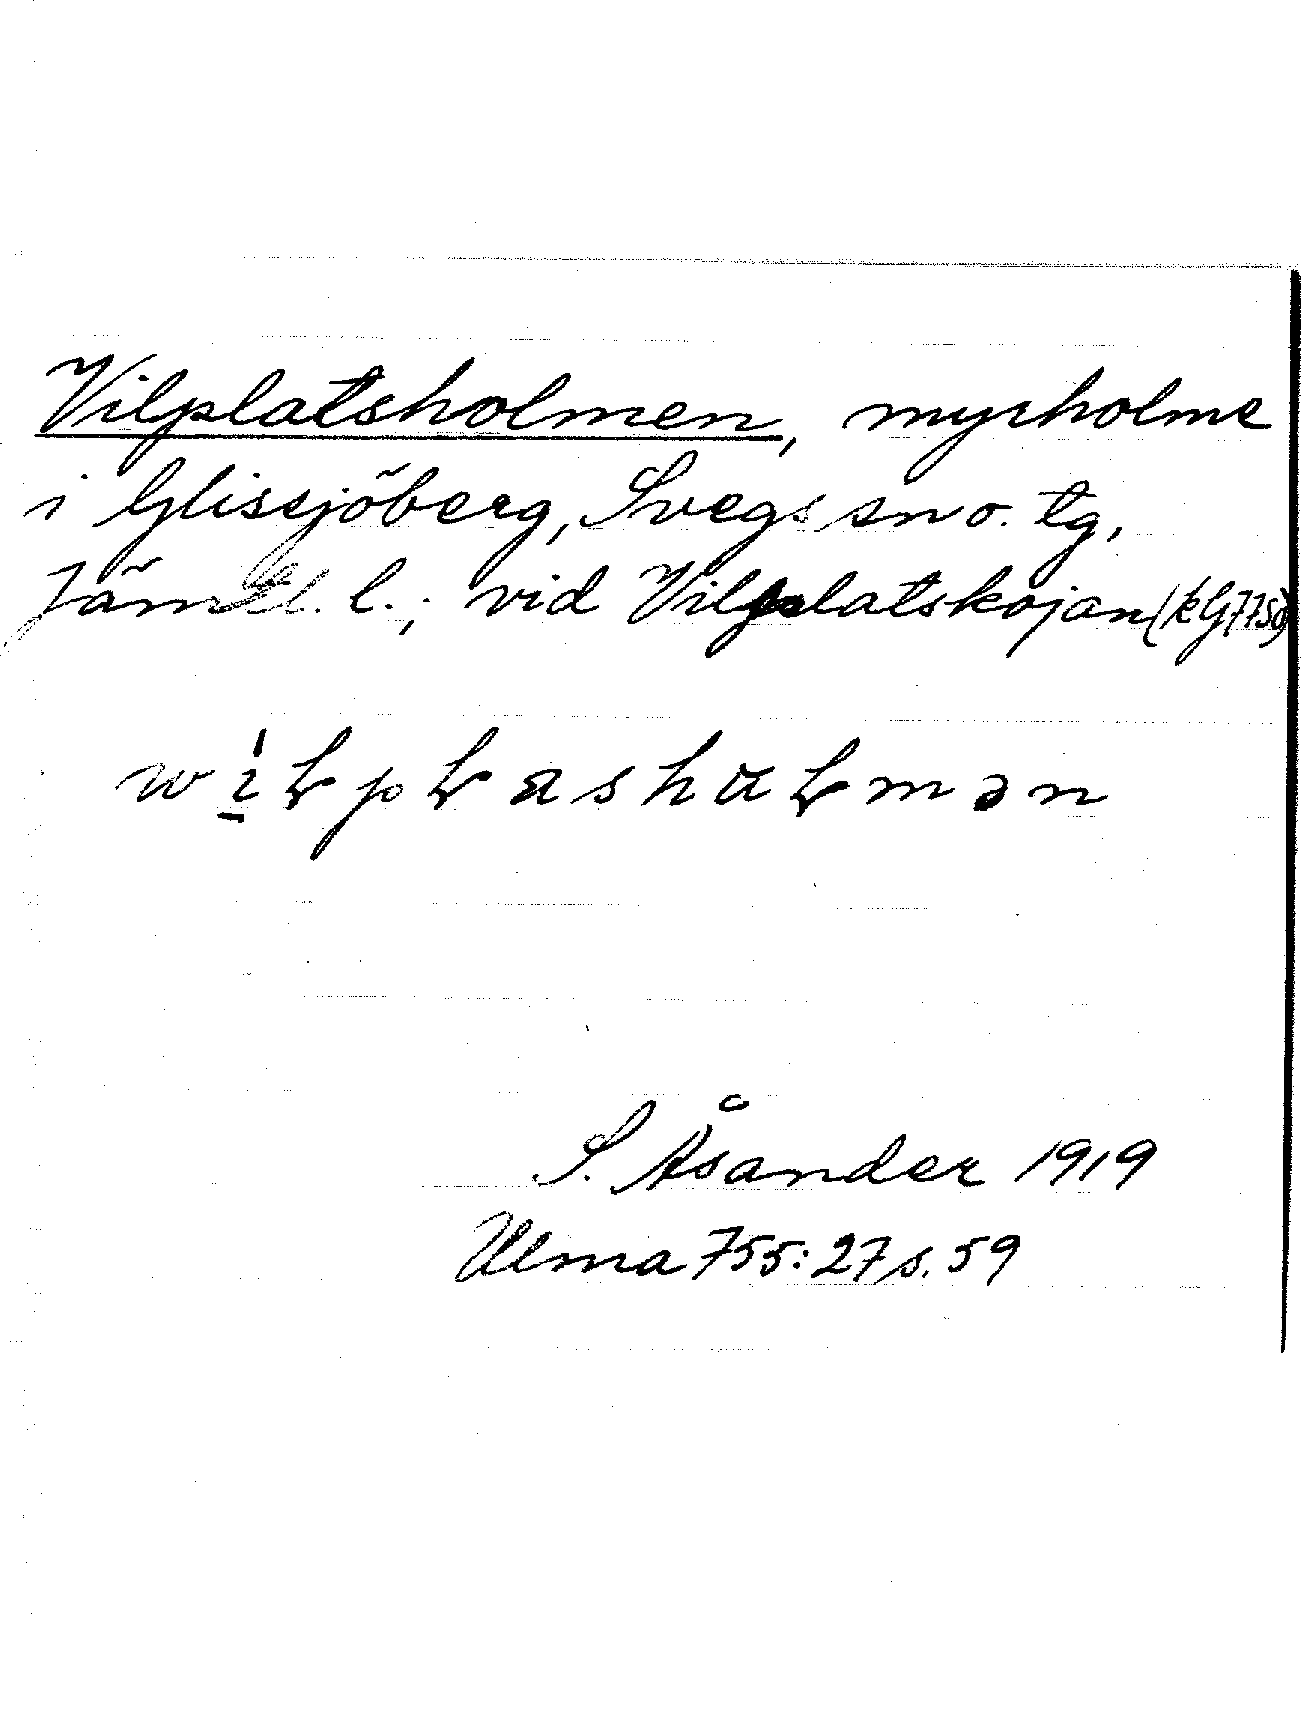 Vilplatsholmen, myrholme
i Glissjöberg, Svegs sn o. tg,
Jämtl. l.; vid Vilplatskojan
S. Åsander 1919
Ulma 755:27 s. 59